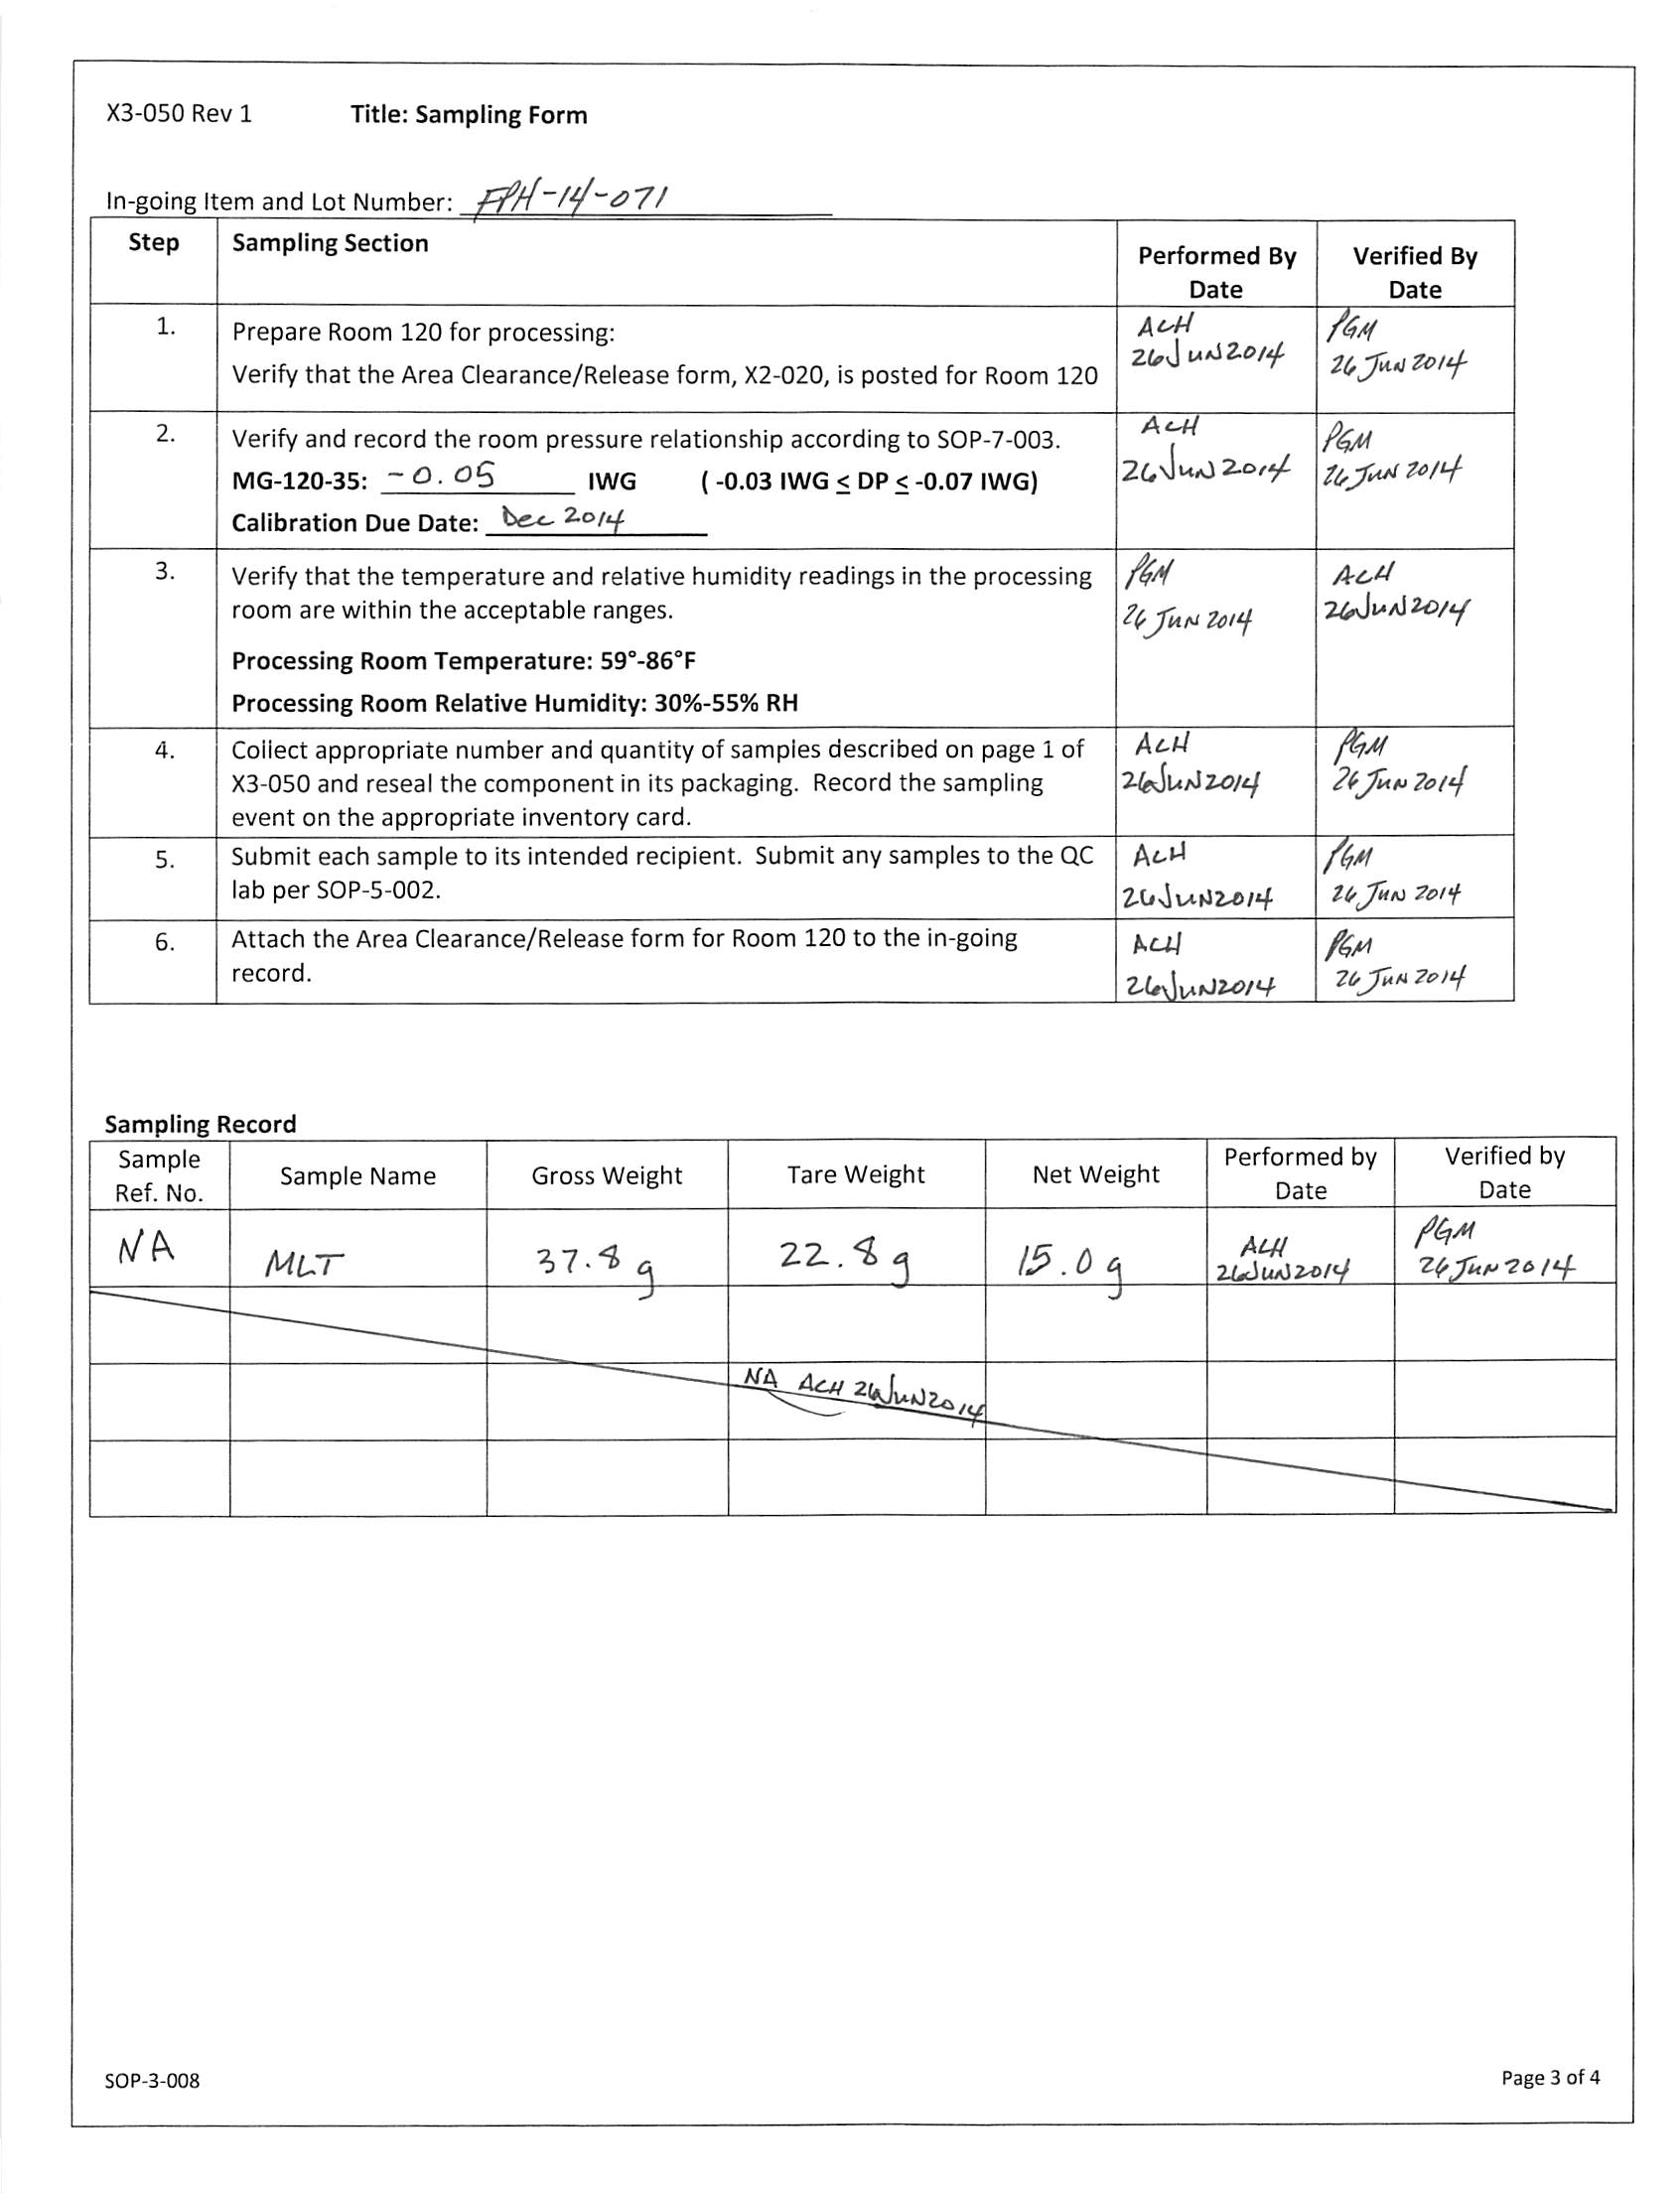 X3-050 Rev 1 Title: Sampling Form
In-going Item and Lot Number: FPH-14-071
Step Sampling Section Performed By Date Verified By Date
1. Prepare Room 120 for processing:
Verify that the Area Clearance/Release form, X2-020, is posted for Room 120
ACH
26JUN2014
PGM
26 JUN 2014
2. Verify and record the room pressure relationship according to SOP-7-003.
MG-120-35: -0.05 IWG ( -0.03 IWG ≤ DP ≤ -0.07 IWG)
Calibration Due Date: Dec 2014
ACH
26JUN2014
PGM
26 JUN 2014
3. Verify that the temperature and relative humidity readings in the processing
room are within the acceptable ranges.
Processing Room Temperature: 59°-86°F
Processing Room Relative Humidity: 30%-55% RH
PGM
26 JUN 2014
ACH
26JUN2014
4. Collect appropriate number and quantity of samples described on page 1 of
X3-050 and reseal the component in its packaging. Record the sampling
event on the appropriate inventory card.
ACH
26JUN2014
PGM
26 JUN 2014
5. Submit each sample to its intended recipient. Submit any samples to the QC
lab per SOP-5-002.
ACH
26JUN2014
PGM
26 JUN 2014
6. Attach the Area Clearance/Release form for Room 120 to the in-going
record.
ACH
26JUN2014
PGM
26 JUN 2014
Sampling Record
Sample Ref. No. Sample Name Gross Weight Tare Weight Net Weight Performed by Date Verified by Date
NA MLT 37.8 g 22.8 g 15.0 g
ACH
26JUN2014
PGM
26 JUN 2014
NA ACH 26JUN2014
SOP-3-008 Page 3 of 4